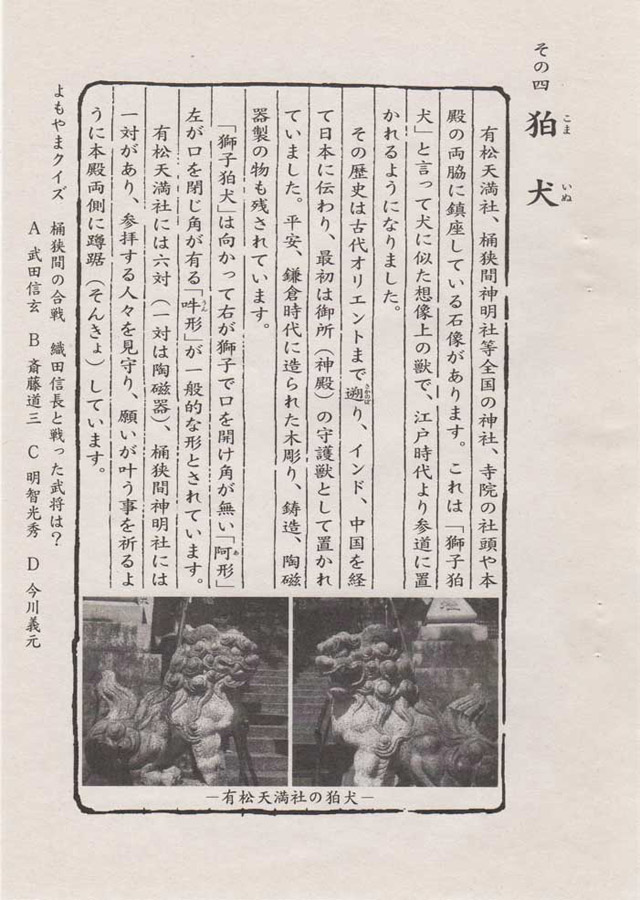 その四 狛犬
こま いぬ
有松天満社、桶狭間神明社等全国の神社、寺院の社頭や本
殿の両脇に鎮座している石像があります。これは「獅子狛
犬」と言って犬に似た想像上の獣で、江戸時代より参道に置
かれるようになりました。
その歴史は古代オリエントまで遡り、インド、中国を経
さかのぼ
て日本に伝わり、最初は御所（神殿）の守護獣として置かれ
ていました。平安、鎌倉時代に造られた木彫り、鋳造、陶磁
器製の物も残されています。
「獅子狛犬」は向かって右が獅子で口を開け角が無い「阿形」
あ
左が口を閉じ角が有る「吽形」が一般的な形とされています。
うん
有松天満社には六対（一対は陶磁器）、桶狭間神明社には
一対があり、参拝する人々を見守り、願いが叶う事を祈るよ
うに本殿両側に蹲踞（そんきょ）しています。
―有松天満社の狛犬―
よもやまクイズ 桶狭間の合戦 織田信長と戦った武将は？
A 武田信玄 B 斎藤道三 C 明智光秀 D 今川義元